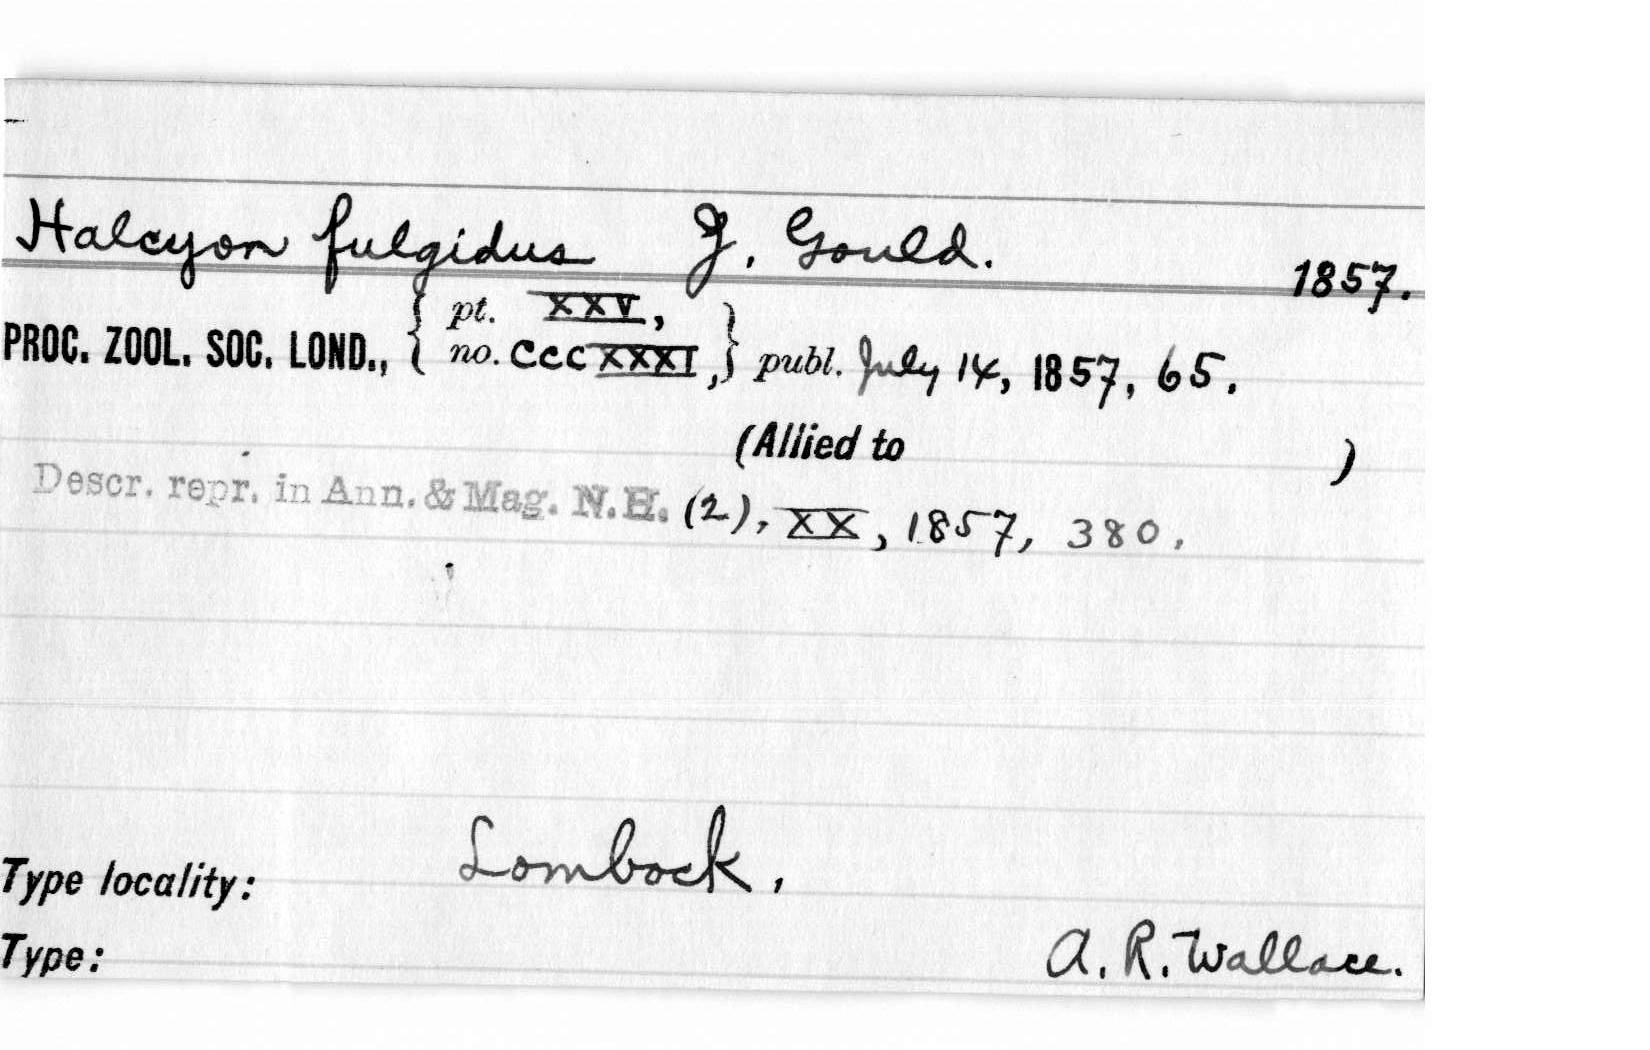 Halcyon fulgidus J. Gould.
1857.
PROC. ZOOL. SOC. LOND., { pt. XXV, no. CCCXXXI, } publ. July 14, 1857, 65.
(Allied to )
Descr. repr. in Ann. & Mag. N.H. (2), XX, 1857, 380.
Type locality: Lombock.
Type: A. R. Wallace.